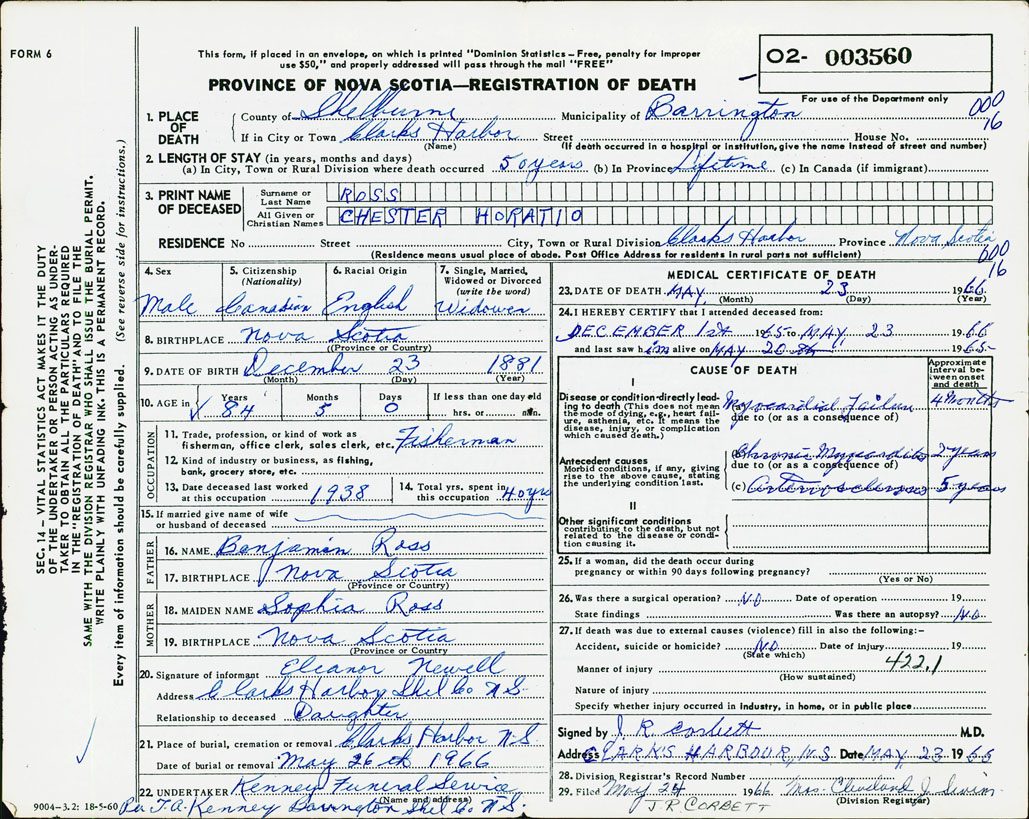 FORM 6
This form, if placed in an envelope, on which is printed "Dominion Statistics – Free, penalty for improper
use $50," and properly addressed will pass through the mail "FREE"
PROVINCE OF NOVA SCOTIA—REGISTRATION OF DEATH
O2- 003560
For use of the Department only
000
16
1. PLACE OF DEATH
County of Shelburne Municipality of Barrington
If in City or Town Clarks Harbor Street House No.
(Name) (If death occurred in a hospital or institution, give the name instead of street and number)
2. LENGTH OF STAY (in years, months and days)
(a) In City, Town or Rural Division where death occurred 50 years (b) In Province Lifetime (c) In Canada (if immigrant)
3. PRINT NAME OF DECEASED
Surname or Last Name ROSS
All Given or Christian Names CHESTER HORATIO
RESIDENCE No Street City, Town or Rural Division Clarks Harbor Province Nova Scotia
(Residence means usual place of abode. Post Office Address for residents in rural parts not sufficient)
000
16
4. Sex Male
5. Citizenship (Nationality) Canadian
6. Racial Origin English
7. Single, Married, Widowed or Divorced (write the word) Widower
8. BIRTHPLACE Nova Scotia
(Province or Country)
9. DATE OF BIRTH December 23 1881
(Month) (Day) (Year)
10. AGE in Years Months Days If less than one day old
84 5 0 hrs. or min.
OCCUPATION
11. Trade, profession, or kind of work as fisherman, office clerk, sales clerk, etc. Fisherman
12. Kind of industry or business, as fishing, bank, grocery store, etc.
13. Date deceased last worked at this occupation 1938
14. Total yrs. spent in this occupation 40 yrs
15. If married give name of wife or husband of deceased
FATHER
16. NAME Benjamin Ross
17. BIRTHPLACE Nova Scotia
(Province or Country)
MOTHER
18. MAIDEN NAME Sophia Ross
19. BIRTHPLACE Nova Scotia
(Province or Country
20. Signature of informant Eleanor Newell
Address Clarks Harbor Shel Co. N S.
Relationship to deceased Daughter
21. Place of burial, cremation or removal Clarks Harbor N S
Date of burial or removal May 26 th 1966
22. UNDERTAKER Kenney Funeral Service
(Name and address)
Per T. A. Kenney Barrington Shel Co. N.S.
9004-3.2: 18-5-60
MEDICAL CERTIFICATE OF DEATH
23. DATE OF DEATH MAY, 23 1966
(Month) (Day) (Year)
24. I HEREBY CERTIFY that I attended deceased from:
DECEMBER 1st 1965 to MAY 23 1966
and last saw him alive on MAY 20 th 1965
CAUSE OF DEATH
Approximate interval between onset and death
I
Disease or condition directly leading to death (This does not mean the mode of dying, e.g., heart failure, asthenia, etc. It means the disease, injury, or complication which caused death.)
(a) Myocardial Failure 4 Months
due to (or as a consequence of)
Antecedent causes
Morbid conditions, if any, giving rise to the above cause, stating the underlying condition last.
(b) Chronic Myocarditis 2 years
due to (or as a consequence of)
(c) Arteriosclerosis 5 years
II
Other significant conditions contributing to the death, but not related to the disease or condition causing it.
25. If a woman, did the death occur during pregnancy or within 90 days following pregnancy?
(Yes or No)
26. Was there a surgical operation? NO Date of operation 19
State findings Was there an autopsy? No
27. If death was due to external causes (violence) fill in also the following:–
Accident, suicide or homicide? NO Date of injury 19
(State which)
422.1
Manner of injury
(How sustained)
Nature of injury
Specify whether injury occurred in industry, in home, or in public place
Signed by J. R Corbett M.D.
Address CLARK'S HARBOUR, N.S. Date MAY 23 1966
28. Division Registrar's Record Number
29. Filed May 24 1966 Mrs. Cleveland J. Swim
(Division Registrar)
J. R. CORBETT
SEC. 14 – VITAL STATISTICS ACT MAKES IT THE DUTY
OF THE UNDERTAKER OR PERSON ACTING AS UNDER-
TAKER TO OBTAIN ALL THE PARTICULARS REQUIRED
IN THE "REGISTRATION OF DEATH" AND TO FILE THE
SAME WITH THE DIVISION REGISTRAR WHO SHALL ISSUE THE BURIAL PERMIT.
WRITE PLAINLY WITH UNFADING INK. THIS IS A PERMANENT RECORD.
Every item of information should be carefully supplied. (See reverse side for instructions.)